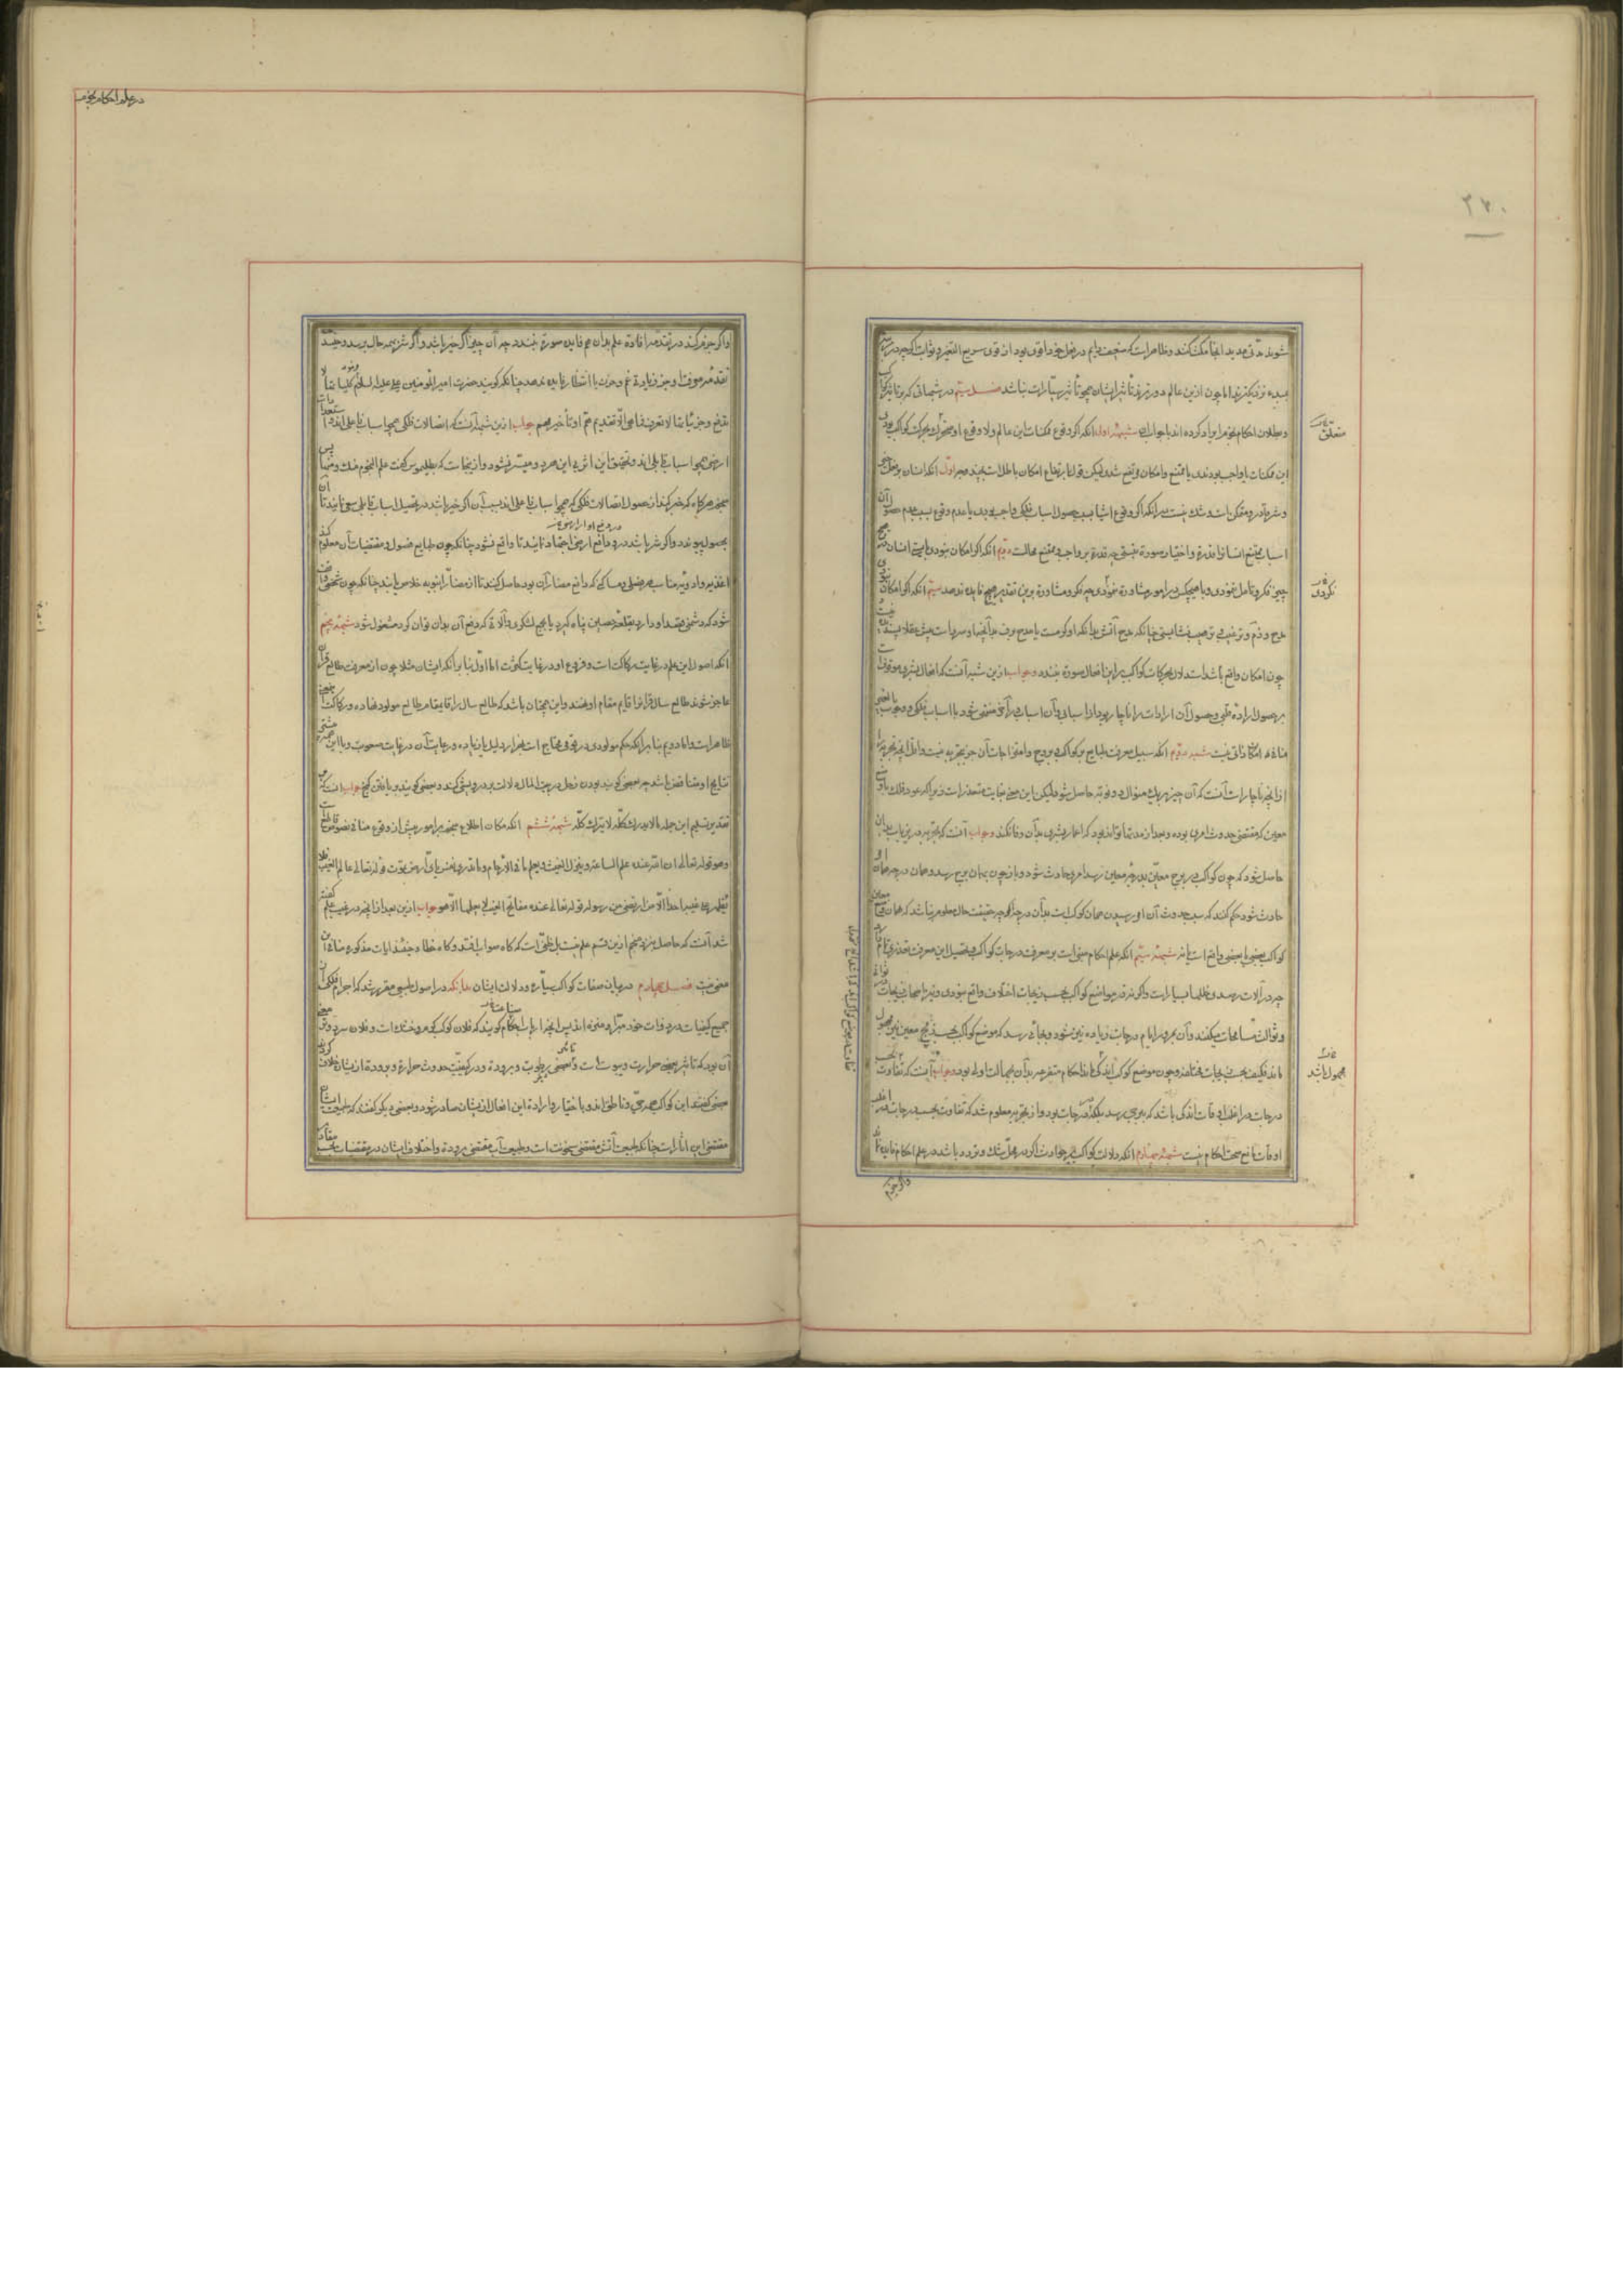 ۲۷۰
شوند مدتی مدید ابقا ممکن کنند و ظاهر است که منجم دایم در فعل خود اقوی بود از قوی سریع التغیر و ثوابت اگرچه
بعید نزدیکترند اما چون ازین عالم دورترند تأثیر ایشان همچو تأثیر سیارات نباشد فصل سیم در شبهاتی که بر تأثیر کواکب
و بطلان احکام نجوم ایراد کرده اند با جواب آن شبهۀ اول آنکه اگر وقوع ممکنات این عالم و لا وقوع او بحرکت کواکب بودی
این ممکنات یا واجب بودندی یا ممتنع و امکان مرتفع شدی لیکن قول بارتفاع امکان باطلست بچند وجه اول آنکه انسان بر فعل خیر
و شر قادر و متمکن است و شک نیست در آنکه اگر وقوع اشیا بسبب حصول اسباب فلکی واجب بودی یا عدم وقوع بسبب عدم حصول آن
اسباب ممتنع انسانرا قدرة و اختیار صورة نبستی چه قدرة بر واجب و ممتنع محالست دوم آنکه اگر امکان نبودی بایستی انسان در هیچ
چیز فکر و تامل ننمودی و با هیچکس در امور مشاورة ننمودی چه فکر و مشاورة برین تقدیر هیچ فایده ندهد سیم آنکه اگر امکان نبودی
مدح و ذم و ترغیب و ترهیب نشایستی چنانکه مدح آتش بدانکه او گرمست یا مدح برف بدانچه او سرد است پیش عقلا پسندیده نیست و
چون امکان واقع باشد استدلال بحرکات کواکب بر این افعال صورة نبندد و جواب ازین شبه آنست که افعال بشری موقوفست
بر حصول ارادۀ طبی و حصول آن ارادات را ناچار بود از اسبابی و آن اسباب در آخر منتهی شود با اسباب فلکی و وجوب بالغیر
منافی امکان ذاتی نیست شبهه دوم آنکه سبیل معرفت طبایع هر کواکب و بروج و امتزاجات آن جز تجربه نیست و اقل آنچه تجربه را
از آنچه ناچار است آنست که آن چیز بر یک منوال دو نوبت حاصل شود و لیکن این معنی بغایت متعذر است زیرا که عود فلک باوضاعی
معین که مقتضی حدوث امری بوده و بعد از مدتها تواند بود که اعمار بشری بدان وفا نکند و جواب آنست که تجربه درین باب بدان
حاصل شود که چون کواکب در برج معین بدرجۀ معین رسد امری حادث شود و باز چون بدان برج رسد و همان درجه همان امر
حادث شود حکم کنند که سبب حدوث آن امر رسیدن همان کوکب است بدان درجه اگرچه حقیقت حال معلوم نباشد که همان وضع معین
کواکب بعینه یا بعضی واقع است یا نه شبهۀ سیم آنکه علم احکام مبنی است بر معرفت درجات کواکب و تحصیل این معرفت متعذر
چه در آلات رصدی خللها بسیار است و اگر نه در مواضع کواکب بحسب زیجات اختلاف واقع نبودی و نیز اصحاب زیجات در ثوانی
و ثوالث مسامحات میکنند و آن بمرور ایام درجات زیاده نیز شود و بجائی رسد که موضع کواکب بحسب زیج معین نیز مجهول
ماند فکیف بحسب زیجات مختلفه و چون موضع کوکب
درجات در اغلب اوقات اندکی باشد که ببرجی رسد بلکه در درجات بود و از تجربه معلوم شد که تفاوت بحسب درجات در اغلب
اوقات مانع صحت احکام نیست شبهۀ چهارم آنکه دلالت کواکب بر حوادث اگر در محل شک و تردد باشد در علم احکام فایده نماند
و اگر جزم
در علم احکام نجوم
و اگر جزم کنند در تقدمه افادة علم بدان هم فایده صورة نبندد چه آن چیز اگر خیر باشد و اگر شر بهمه حال برسد و حینئذ
تقدمه موقت او جز زیادة غم و حزن یا انتظار فایده ندهد چنانکه گویند حضرت امیر المؤمنین علی علیه السلام
تدفع و جزئیاتها لا تعرف فما هی الا تقدیم هم او تأخیر مهم جواب ازین شبه آنست که اتصالات فلکی همچو اسباب فاعلی اند و استعدادات
ارضی همچو اسباب قابلی اند و تحقیق این اثر بی این هر دو میسر نشود و از نجاست که بطلیموس گفت علم النجوم منک و منها پس
منجم هر گاه که خبر کند از حصول اتصالات فلکی که همچو اسباب فاعلی اند بسبب آن اگر خیر باشد در تحصیل اسباب قابلی سعی نمایند تا آن
بحصول پیوندد و اگر شر باشد در دفع ارضی اجتهاد نمایند تا واقع نشود چنانکه چون طبایع فصول و مقتضیات آن معلوم کنند
اغذیه و ادویه مناسب هر فصلی و مساکنی که دافع مضار آن بود حاصل کنند تا از مضار اینها خلاص یابند چنانکه چون شخصی واقف
شود که دشمنی قصد او دارد بقلعۀ حصین پناه گیرد یا بجمع لشکری و آلاتی که دفع آن بدان توان کرد مشغول شود شبهۀ پنجم
آنکه اصول این علم در غایت رکاکت است و فروع او در غایت کثرت اما اول بنابر آنکه ایشان مثلا چون از معرفت طالع قران
عاجز شوند طالع سال قران را قایم مقام او نهند و این همچنان باشد که طالع سال را قایمقام طالع مولود نهاده و رکاکت این
ظاهر است و اما دویم بنابر آنکه حکم مولودی در قوی محتاج است بهزار دلیل یا زیاده و رعایت آن در غایت صعوبت و با این همه
نتایج او متناقض باشد چه بعضی گویند بودن زحل در بیت المال دلالت بر درویشی کند و بعضی گویند بر یافتن گنج جواب آنست که
تقدیر تسلیم این جمله ما لا یدرک کله لا یترک کله شبهۀ ششم آنکه مکان اطلاع منجم بر امور پیش از وقوع منافی نصوص قاطع است
و هو قوله تعالی ان الله عنده علم الساعة و ینزل الغیث و یعلم ما فی الارحام و ما تدری نفس بای ارض تموت قوله تعالی عالم الغیب فلا
یظهر علی غیبه احدا الا من ارتضی من رسول قوله تعالی عنده مفاتح الغیب لا یعلمها الا هو جواب ازین بعد از آنچه در غیب علم گفته
شد آنست که حاصل نزد منجم ازین قسم علم نیست بل ظنی است که گاه صواب افتد و گاه خطا و حینئذ ایات مذکوره منافی این
معنی نیست فصل چهارم در بیان صفات کواکب سیاره و دلالات ایشان بدانکه در اصول طبیعی مقرر شد که اجرام فلکی از
جمیع کیفیات در ذوات خود مبرا و منزه اند پس آنچه ارباب احکام گویند که فلان کوکب گرم و خشک است و فلان سرد و تر معنی
آن بود که تاثیر بعضی حرارت و یبوست است و بعضی برطوبت و برودة و در کیفیت حدوث حرارة و برودة از ایشان خلاف کرده اند
بعضی گفتند این کواکب همه حی و ناطق اند و با اختیار و ارادة این افعال از ایشان صادر شود و بعضی دیگر گفتند که طبیعت ایشان
مقتضی این آثار است چنانکه طبیعت آتش مقتضی سخونت است و طبیعت آب مقتضی برودة و اختلاف ایشان در مقتضیات بحسب